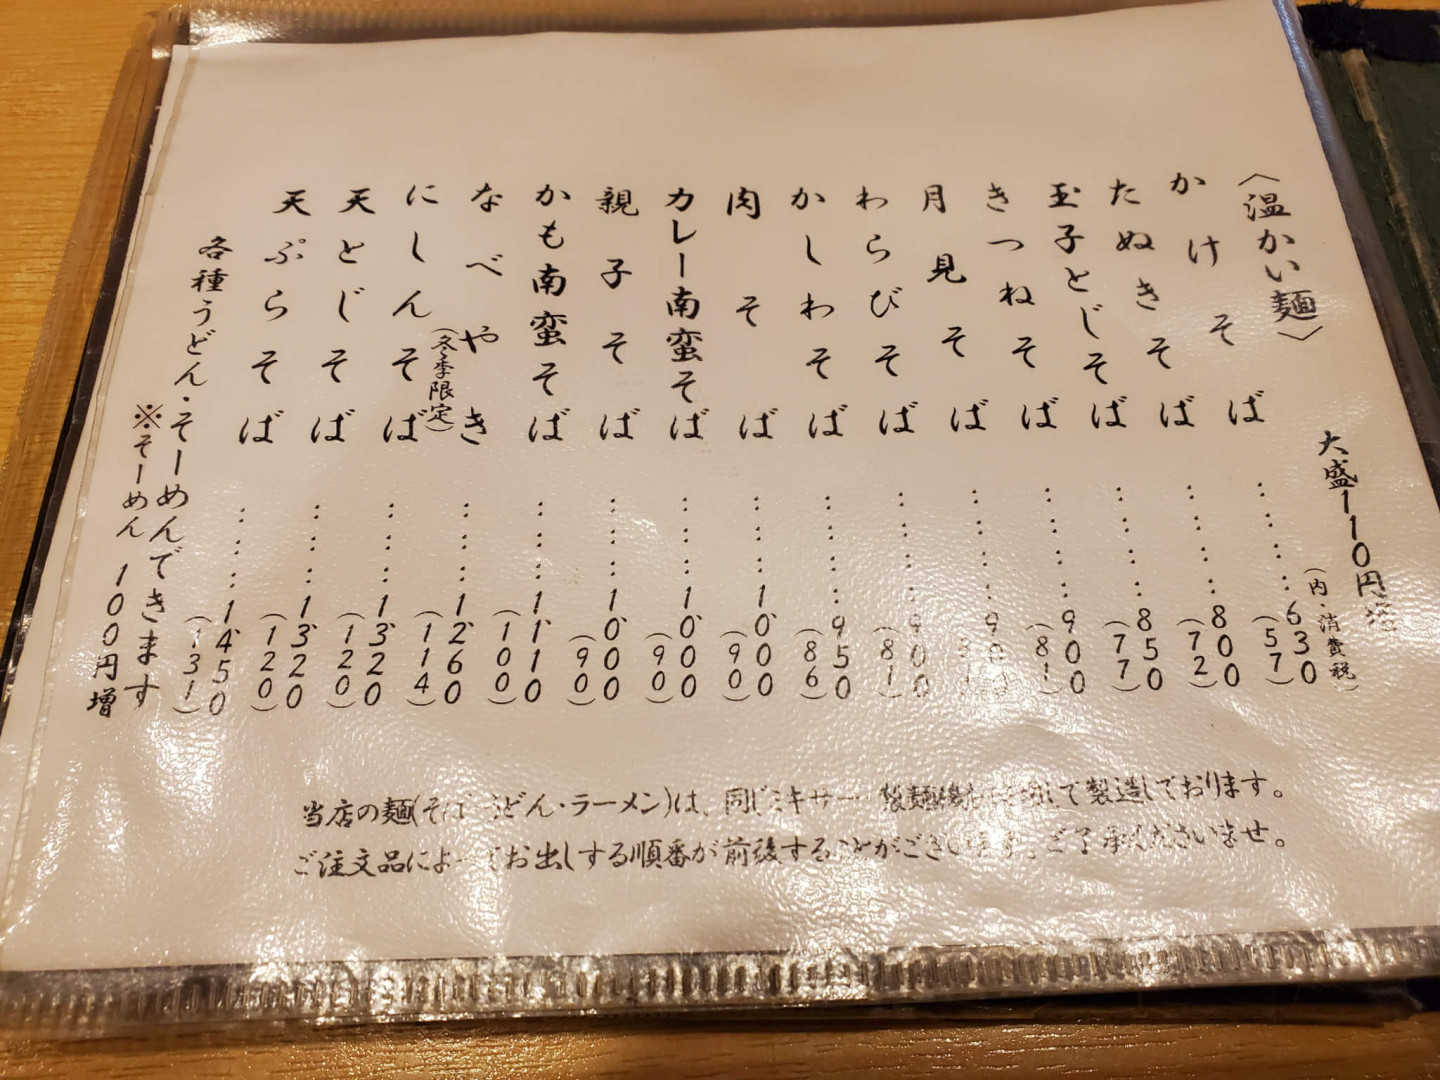 大盛110円増
(内・消費税)
〈温かい麺〉
かけそば……630
(57)
たぬきそば……800
(72)
玉子とじそば……850
(77)
きつねそば……900
(81)
月見そば……900
(81)
わらびそば……900
(81)
かしわそば……950
(86)
肉そば……1,000
(90)
カレー南蛮そば……1,000
(90)
親子そば……1,000
(90)
かも南蛮そば……1,110
(100)
なべやき……1,260
(冬季限定)
(114)
にしんそば……1,320
(120)
天とじそば……1,320
(120)
天ぷらそば……1,450
(131)
各種うどん・そーめんできます
※そーめん 100円増
当店の麺(そば うどん・ラーメン)は、同じミキサー 製麺機 て製造しております。
ご注文品によってお出しする順番が前後することがございます。ご了承くださいませ。